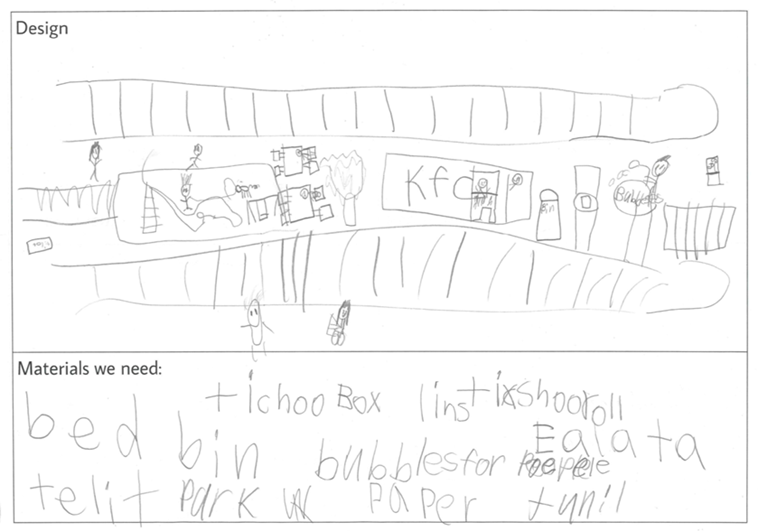 Design
Kfc
Bin
Bubbles
Materials we need:
tichoo Box lins tixshooroll
bed bin bubblesfor Ealata
telit park paper tunil